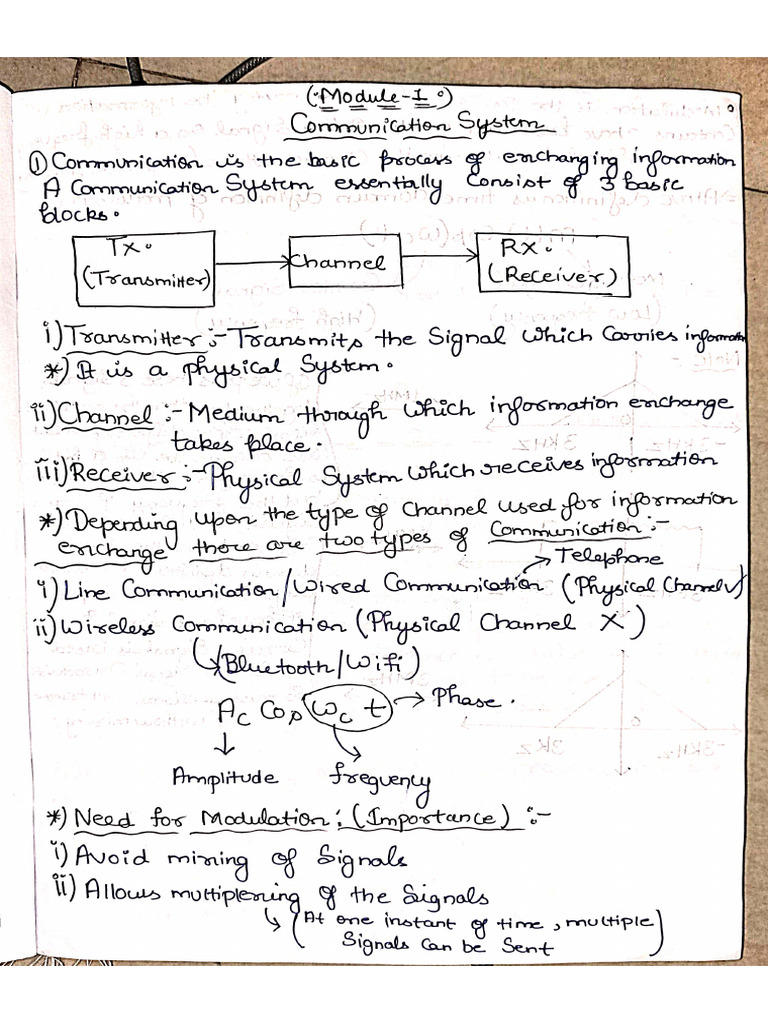 (·Module-1·)
Communication System
① Communication is the basic process of exchanging information
A Communication System essentially Consist of 3 basic
blocks.
Tx. (Transmitter) → Channel → Rx. (Receiver)
i) Transmitter :- Transmits the Signal which Carries information
*) It is a physical System.
ii) Channel :- Medium through which information exchange
takes place.
iii) Receiver :- Physical System which receives information
*) Depending upon the type of Channel used for information
exchange there are two types of Communication :-
→ Telephone
i) Line Communication/Wired Communication (Physical Channel ✓)
ii) Wireless Communication (Physical Channel X)
(↳ Bluetooth/Wifi)
Ac Cos ωc t → Phase.
↓
Amplitude frequency
*) Need for Modulation: (Importance) :-
i) Avoid mixing of Signals
ii) Allows multiplexing of the Signals
↳ (At one instant of time, multiple
Signals can be Sent)